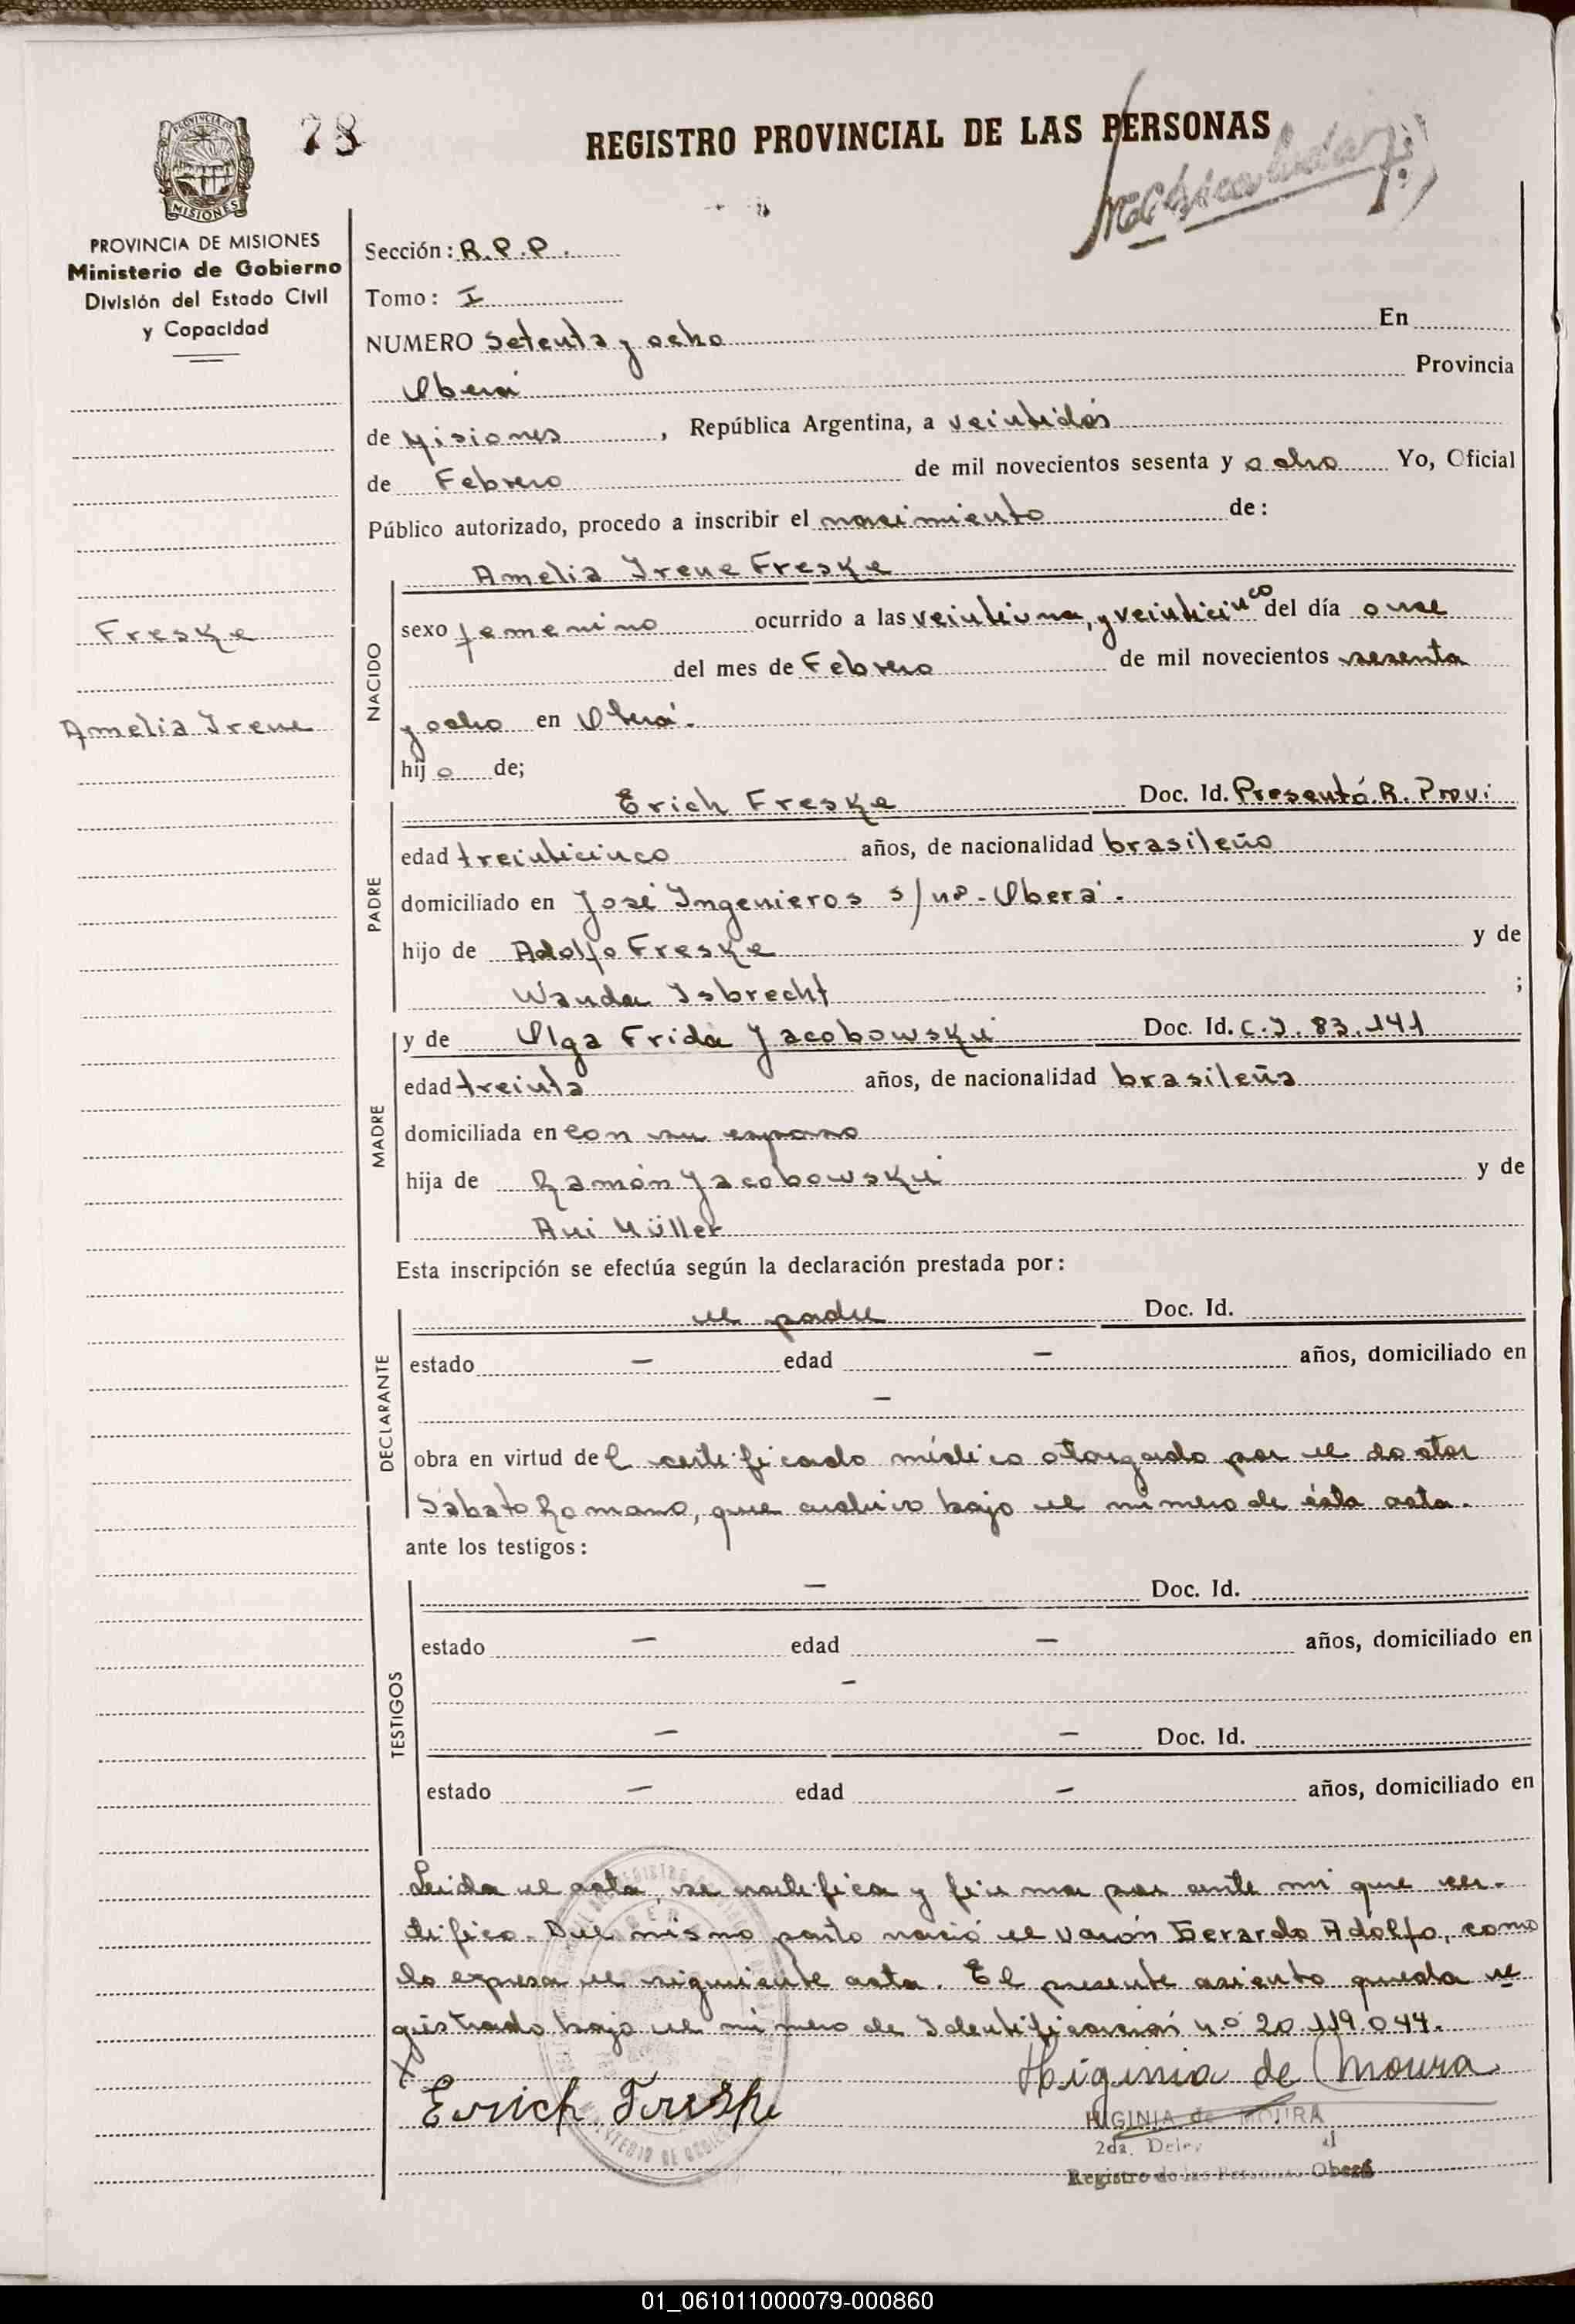 78
REGISTRO PROVINCIAL DE LAS PERSONAS
PROVINCIA DE MISIONES
Ministerio de Gobierno
División del Estado Civil
y Capacidad
Freske
Amelia Irene
Sección: R.P.P.
Tomo: I
NUMERO Setenta y ocho En
Oberá Provincia
de Misiones, República Argentina, a veintidós
de Febrero de mil novecientos sesenta y ocho Yo, Oficial
Público autorizado, procedo a inscribir el nacimiento de:
NACIDO
Amelia Irene Freske
sexo femenino ocurrido a las veintiuna, y veinticinco del día once
del mes de Febrero de mil novecientos sesenta
y ocho en Oberá.
hijo de;
PADRE
Erich Freske Doc. Id. Presentó. R. Provi
edad treinticinco años, de nacionalidad brasileño
domiciliado en José Ingenieros s/nº - Oberá.
hijo de Adolfo Freske y de
Wanda Isbrecht ;
MADRE
y de Olga Frida Jacobowski Doc. Id. C.I. 83.141
edad treinta años, de nacionalidad brasileña
domiciliada en con su esposo
hija de Ramón Jacobowski y de
Ani Müller
Esta inscripción se efectúa según la declaración prestada por:
DECLARANTE
el padre Doc. Id.
estado — edad — años, domiciliado en
—
obra en virtud del certificado médico otorgado por el doctor
Sábato Romano, que archivo bajo el número de ésta acta.
ante los testigos:
TESTIGOS
— Doc. Id.
estado — edad — años, domiciliado en
—
— — Doc. Id.
estado — edad — años, domiciliado en
Leída el acta, se ratifica y firma por ante mí que cer-
tifico. Del mismo parto nació el varón Gerardo Adolfo, como
lo expresa el siguiente acta. El presente asiento queda re
gistrado bajo el número de Identificación nº 20.119.044.
X
Erich Freske
Higinia de Moura
HIGINIA de MOURA
2da.
Registro de las Personas Oberá
01_061011000079-000860